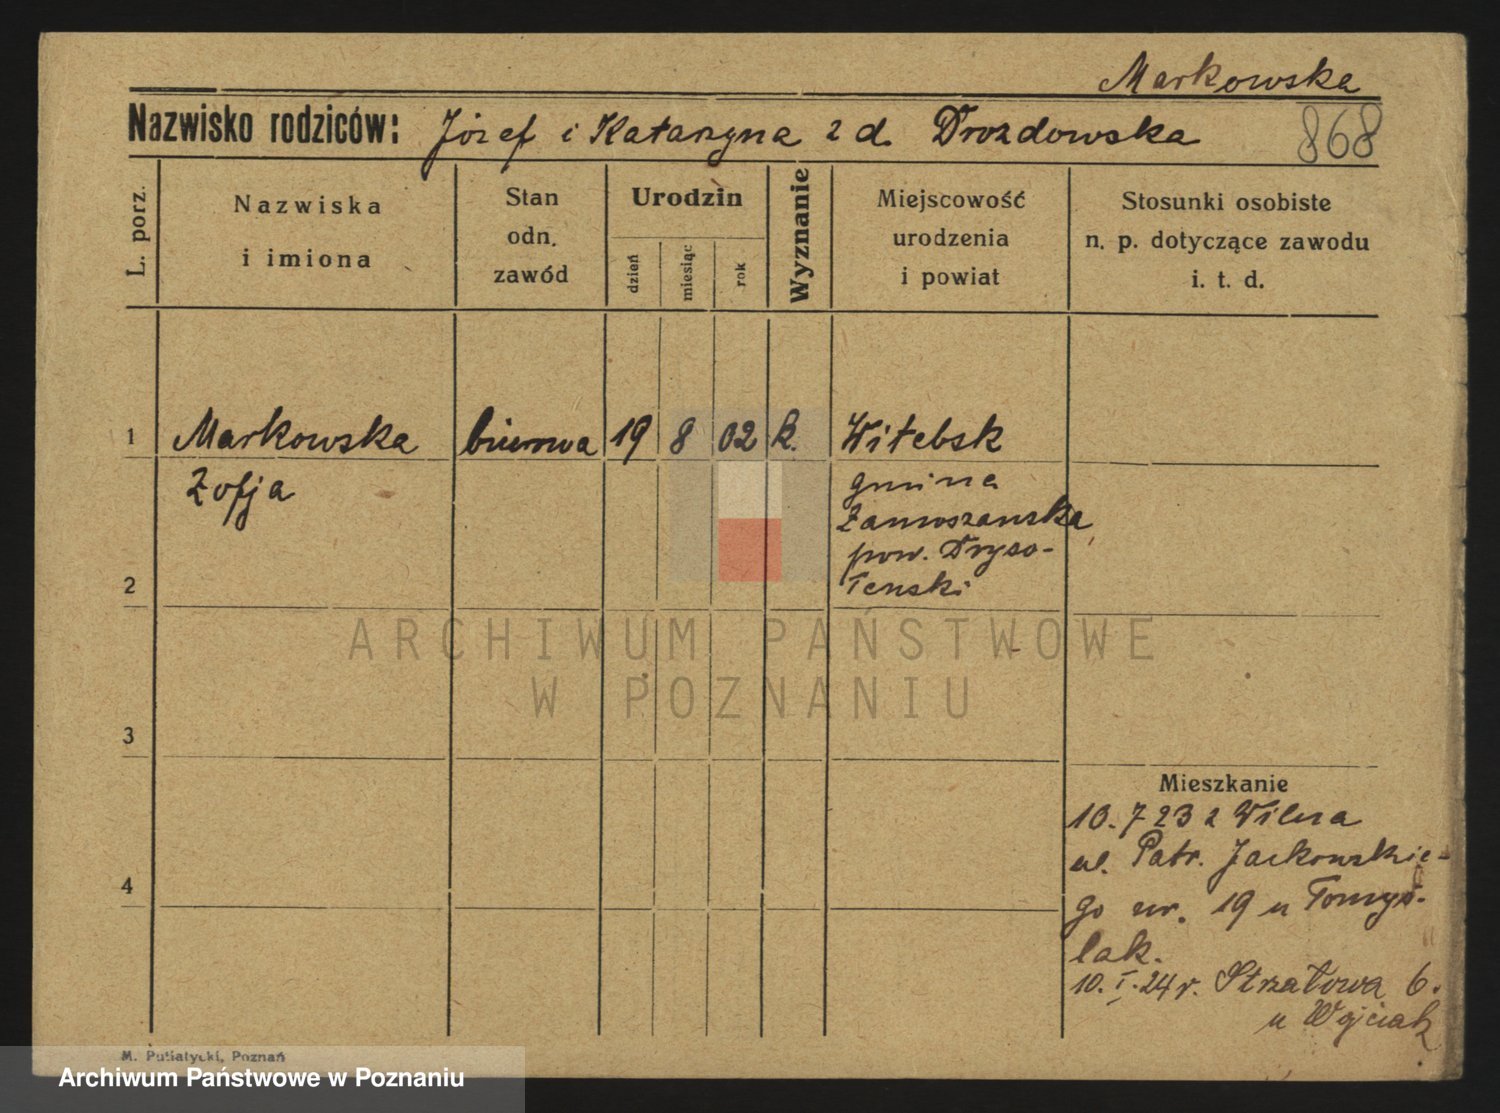 Markowska
Nazwisko rodziców: Józef i Katarzyna z d. Drozdowska
868
L. porz.
Nazwiska
i imiona
Stan
odn.
zawód
Urodzin
dzień
miesiąc
rok
Wyznanie
Miejscowość
urodzenia
i powiat
Stosunki osobiste
n. p. dotyczące zawodu
i. t. d.
1
Markowska
biurowa
19
8
02
k.
Witebsk
Zofja
gmina
Zamoszanska
pow. Dryso-
2
ARCHIWUM PAŃSTWOWE
W POZNANIU
3
Mieszkanie
10.7 23 z Wilna
ul. Patr. Jackowskie-
4
go nr. 19 u Tomys-
lak.
10. I. 24 r. Strzałowa 6.
u Wojciak
M. Putiatycki, Poznań
Archiwum Państwowe w Poznaniu